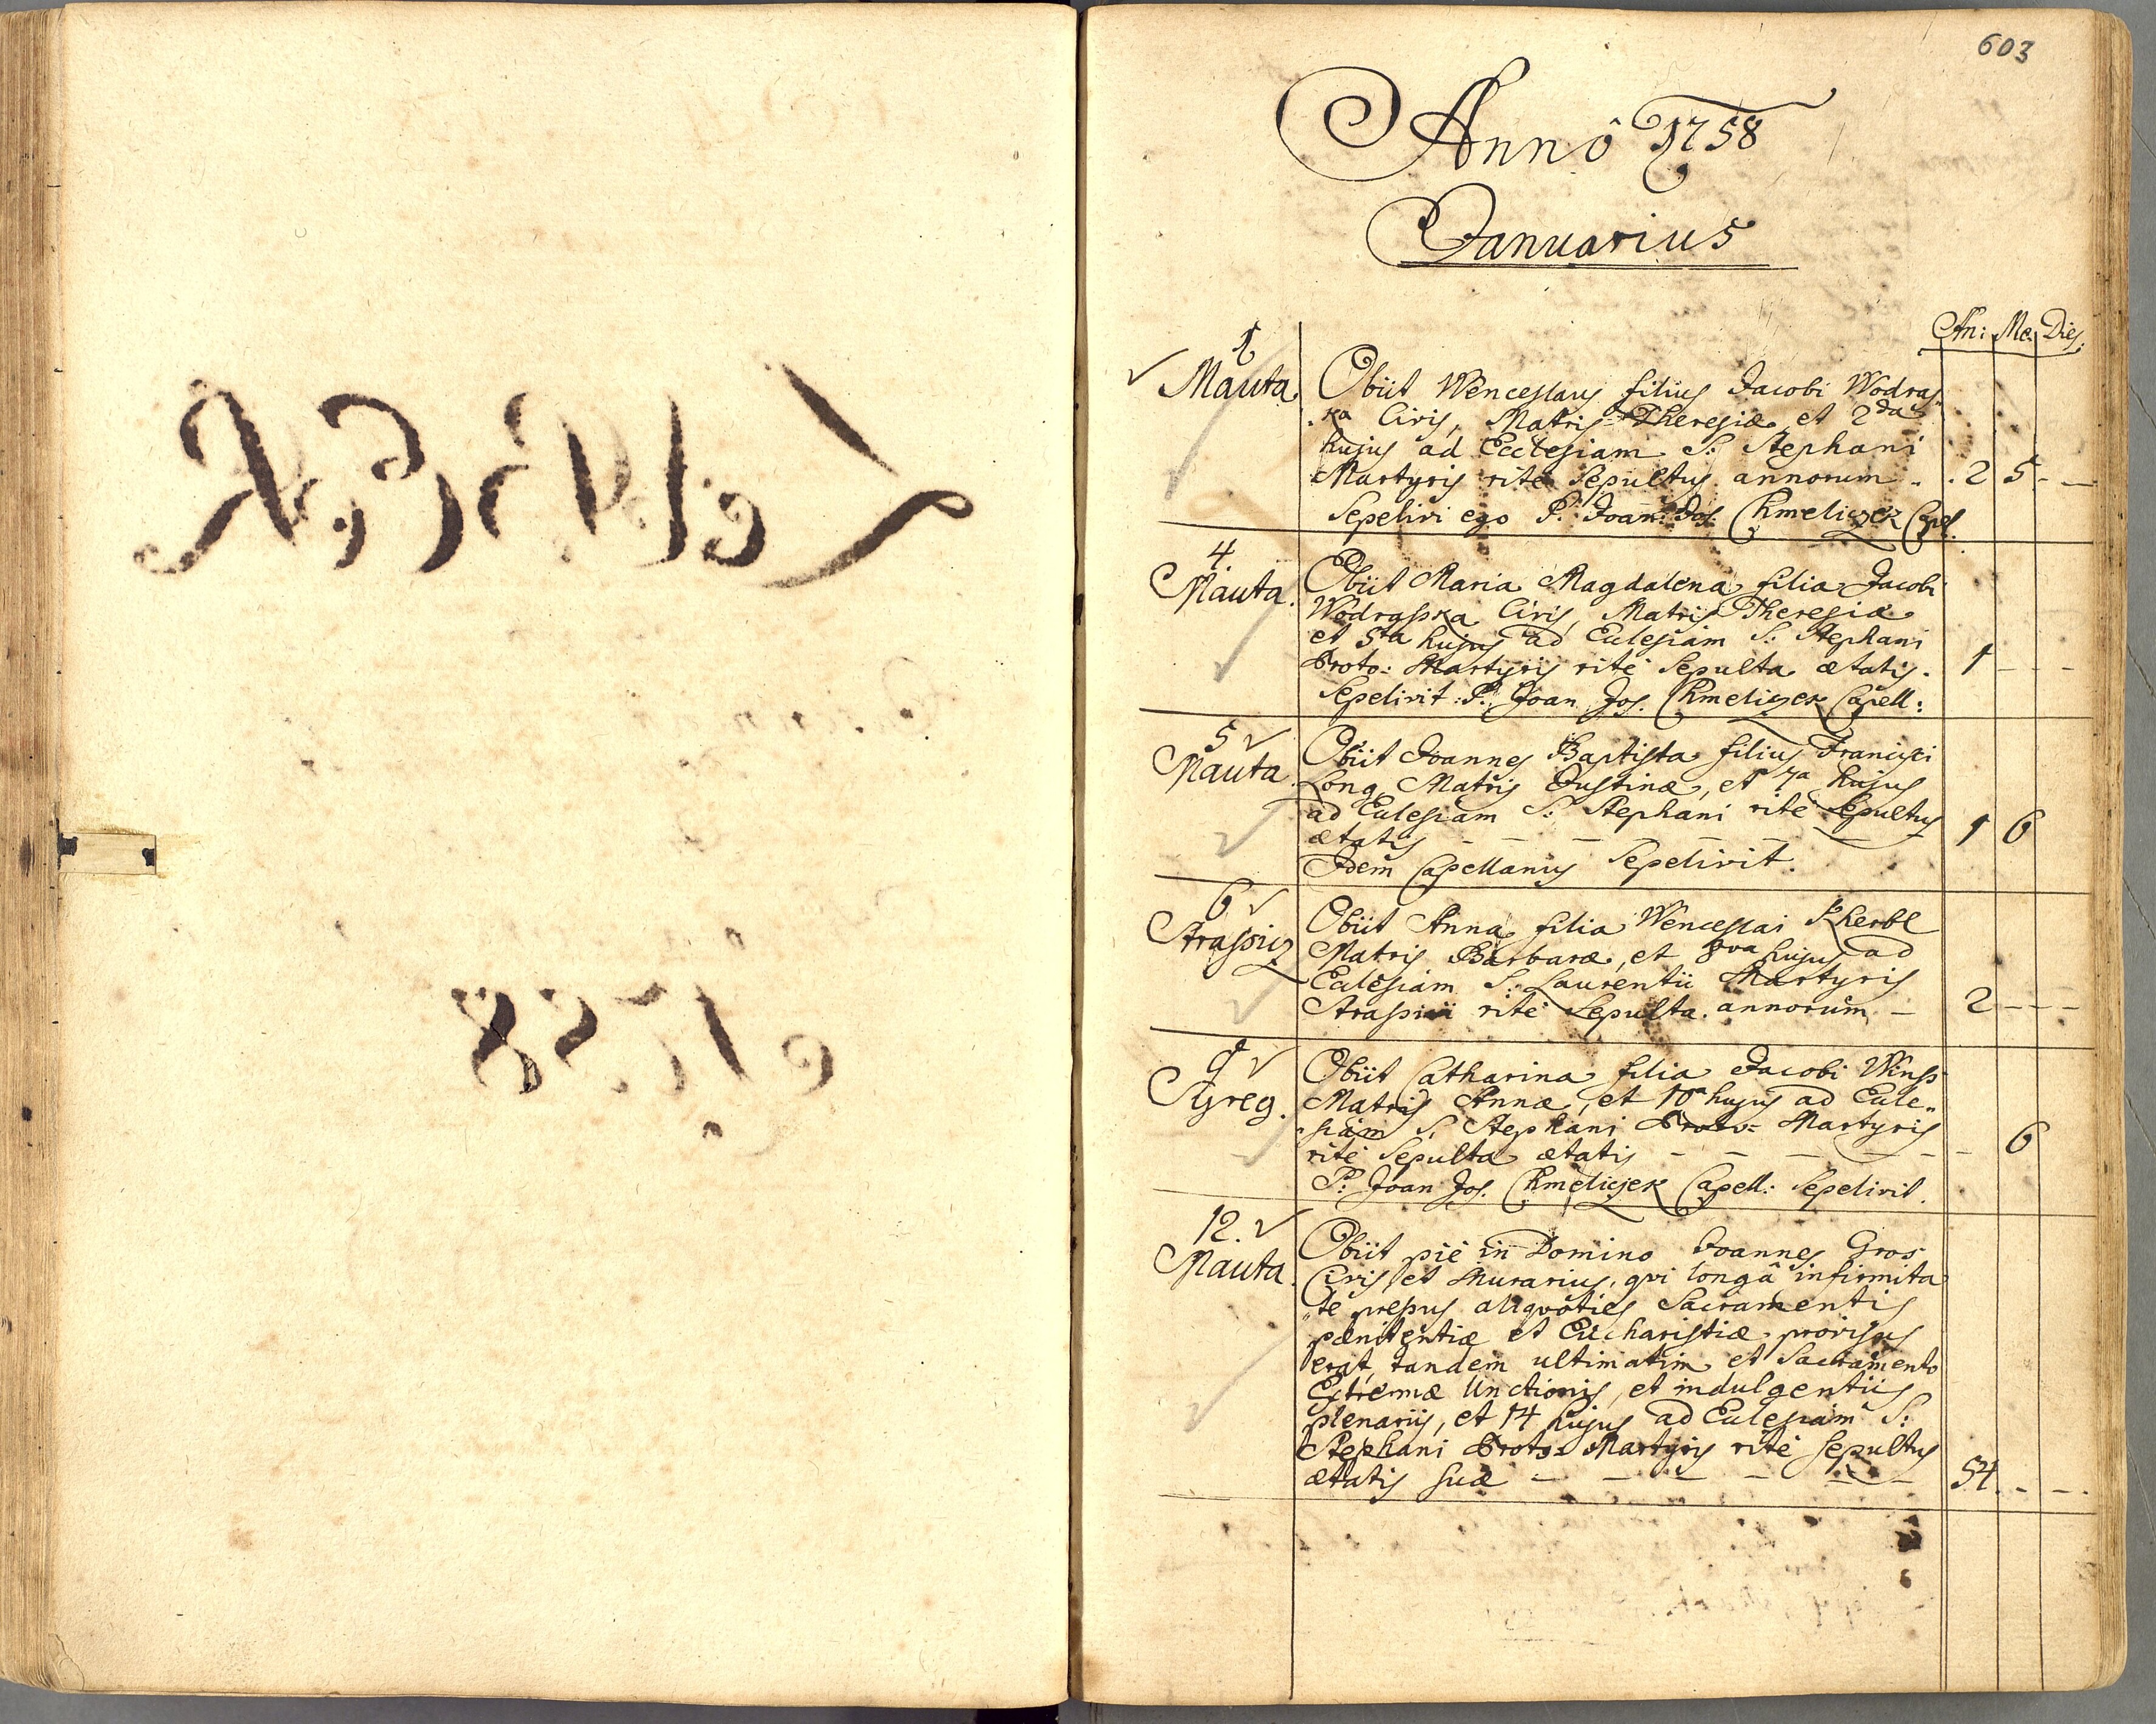 603
Annô 1758
Januarius
An: Me. Dies.
1
Mauta.
Obiit Wenceslaus filius Jacobi Wodras„
„ka Civis, Matris Theresiæ et 2da
hujus ad Ecclesiam S: Stephani
Martyris ritè Sepultus annorum . . 2 5 - —
Sepelivi ego P. Joan: Jos. Chmeliczek Capel.
4.
Mauta.
Obiit Maria Magdalena filia Jacobi
Wodrasska Civis, Matris Theresiæ
et 5ta hujus ad Eclesiam S: Stephani
Proto: Martyris ritè Sepulta ætatis. 1 - - -
Sepelivit P. Joan Jos. Chmeliczek Capell:
5
Mauta
Obiit Joannes Baptista filius Francisci
Long, Matris Justinæ, et 7a hujus
ad Eclesiam S: Stephani ritè Sepultus
ætatis — — — — — 1 6
Idem Capellanus Sepelivit.
6
Strassicz
Obiit Anna filia Wenceslai
Matris Barbaræ, et 8va hujus ad
Eclesiam S: Laurentii Martyris
ritè Sepulta annorum — 2 - - -
9
Greg.
Obiit Catharina filia Jacobi
Matris Annæ, et 10a hujus ad Ecle„
„siam S. Stephani Proto= Martyris
ritè Sepulta ætatis — — — — — — 6
P: Joan Jos. Chmeliczek Capell: Sepelivit.
12.
Mauta.
Obiit piè in Domino Joannes Gros
Civis et Murarius, qvi longâ infirmita
„te pressus aliqvoties Sacramentis
pænitentiæ et Eucharistiæ provisus
erat, tandem ultimatim et Sacramento
Extremæ Unctionis, et indulgentiis
plenariis, et 14 hujus ad Eclesiam S:
Stephani Proto= Martyris ritè sepultus
ætatis suæ — — — — — — 54. - -